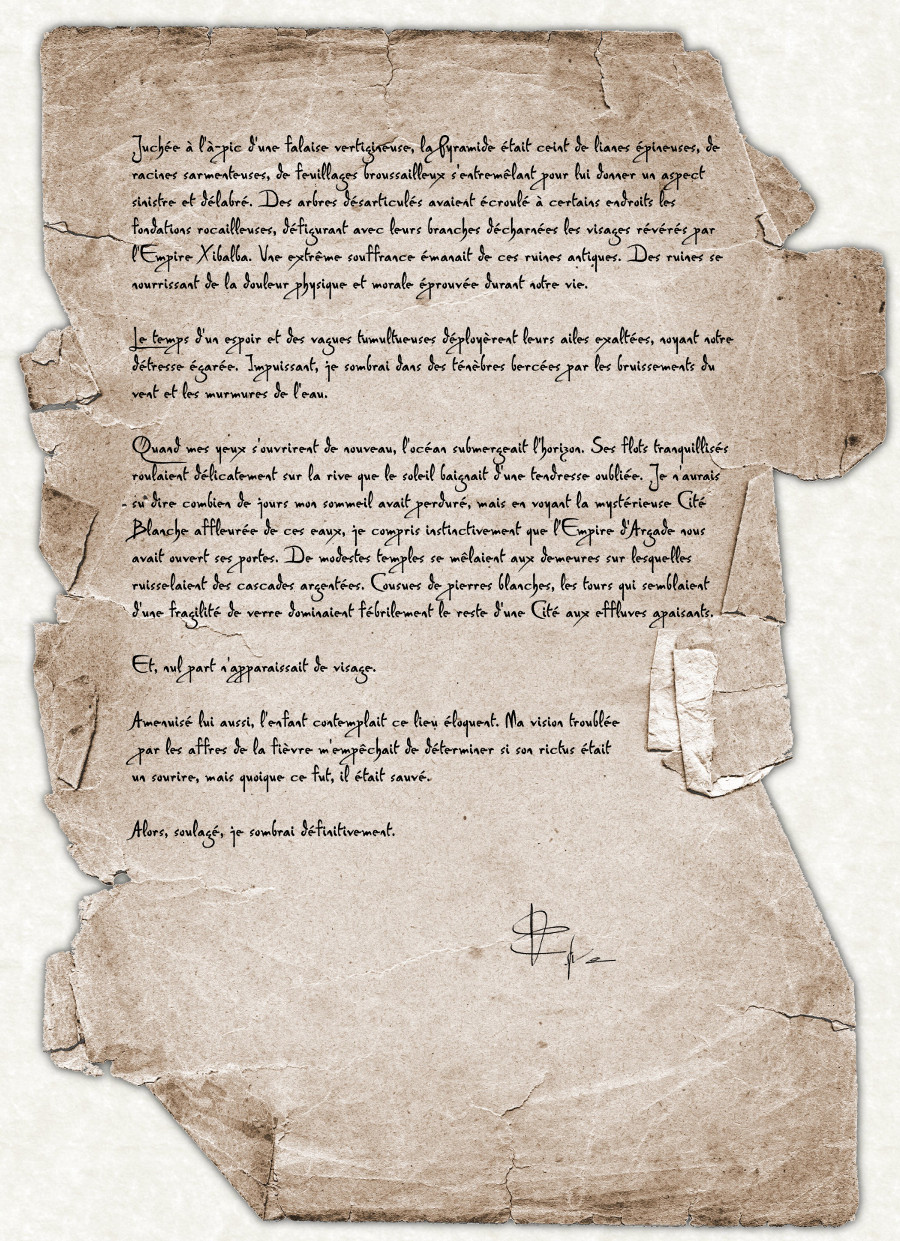 Juchée à l'à-pic d'une falaise vertigineuse, la Pyramide était ceint de lianes épineuses, de
racines sarmenteuses, de feuillages broussailleux s'entremêlant pour lui donner un aspect
sinistre et délabré. Des arbres désarticulés avaient écroulé à certains endroits les
fondations rocailleuses, défigurant avec leurs branches décharnées les visages révérés par
l'Empire Xibalba. Une extrême souffrance émanait de ces ruines antiques. Des ruines se
nourrissant de la douleur physique et morale éprouvée durant notre vie.
Le temps d'un espoir et des vagues tumultueuses déployèrent leurs ailes exaltées, noyant notre
détresse égarée. Impuissant, je sombrai dans des ténèbres bercées par les bruissements du
vent et les murmures de l'eau.
Quand mes yeux s'ouvrirent de nouveau, l'océan submergeait l'horizon. Ses flots tranquillisés
roulaient délicatement sur la rive que le soleil baignait d'une tendresse oubliée. Je n'aurais
su dire combien de jours mon sommeil avait perduré, mais en voyant la mystérieuse Cité
Blanche affleurée de ces eaux, je compris instinctivement que l'Empire d'Argade nous
avait ouvert ses portes. De modestes temples se mêlaient aux demeures sur lesquelles
ruisselaient des cascades argentées. Cousues de pierres blanches, les tours qui semblaient
d'une fragilité de verre dominaient fébrilement le reste d'une Cité aux effluves apaisants.
Et, nul part n'apparaissait de visage.
Amenuisé lui aussi, l'enfant contemplait ce lieu éloquent. Ma vision troublée
par les affres de la fièvre m'empêchait de déterminer si son rictus était
un sourire, mais quoique ce fut, il était sauvé.
Alors, soulagé, je sombrai définitivement.